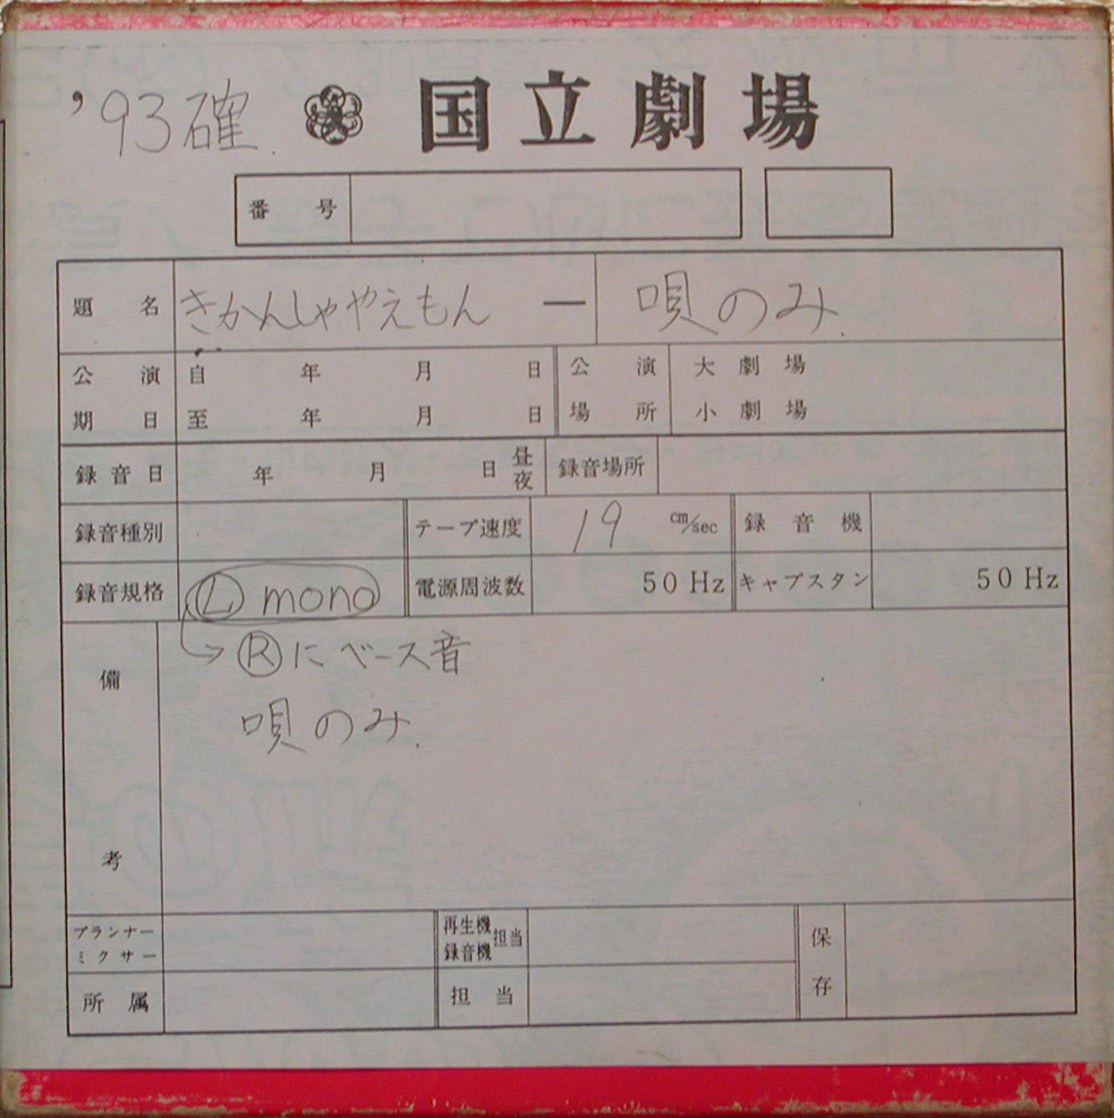 '93確. 国立劇場
番号
題名 きかんしゃやえもん — 唄のみ.
公演 自 年 月 日 公演 大劇場
期日 至 年 月 日 場所 小劇場
録音日 年 月 日 昼夜 録音場所
録音種別 テープ速度 19 cm/sec 録音機
録音規格 Ⓛ mono 電源周波数 50 Hz キャプスタン 50 Hz
備考 → Ⓡにベース音
唄のみ.
プランナー 再生機 担当 保存
ミクサー 録音機
所属 担当